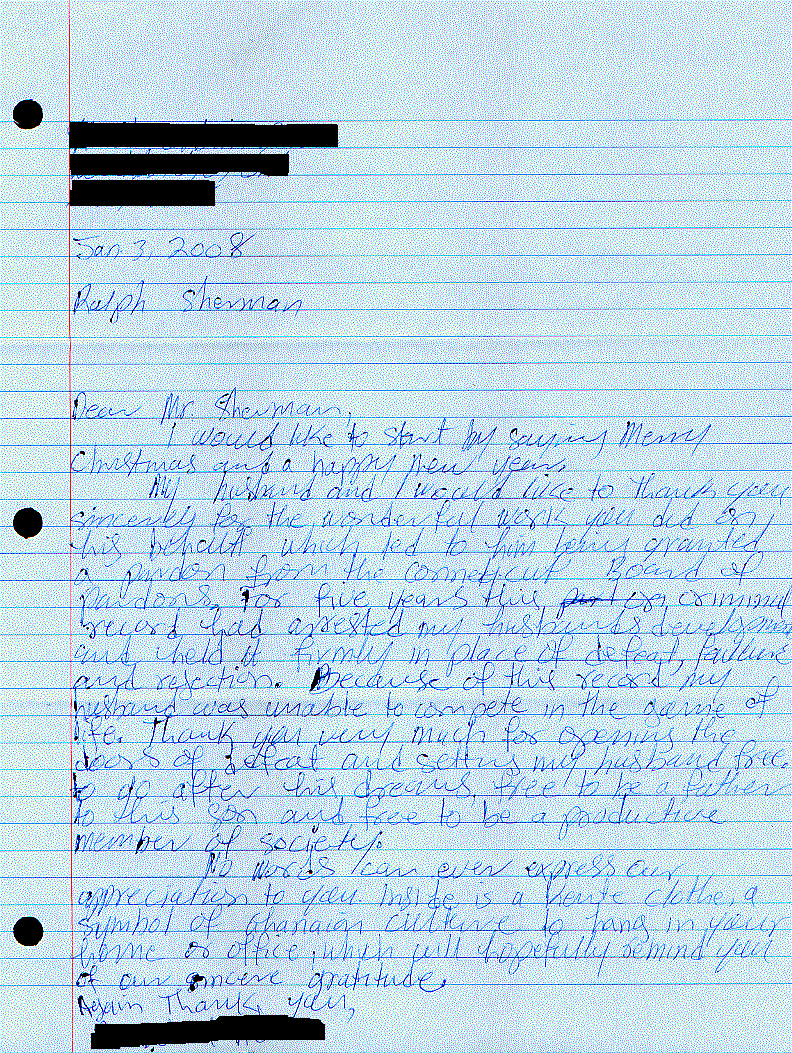 Jan 3, 2008
Ralph Sherman
Dear Mr Sherman,
I would like to start by saying Merry
Christmas and a happy new year.
My husband and I would like to thank you
sincerely for the wonderful work you did on
his behalf which led to him being granted
a pardon from the Board of
Pardons. For five years this criminal
record had arrested my husband's
and held it firmly in place of defeat, failure
and rejection. Because of this record my
husband was unable to compete in the game of
life. Thank you very much for opening the
doors of defeat and setting my husband free
to go after his dreams, free to be a father
to this son and free to be a productive
member of society.
No words can ever express our
appreciation to you. Inside is a clothe, a
symbol of ghanaian culture to hang in your
home or office, which will hopefully remind you
of our sincere gratitude.
Again Thank you,